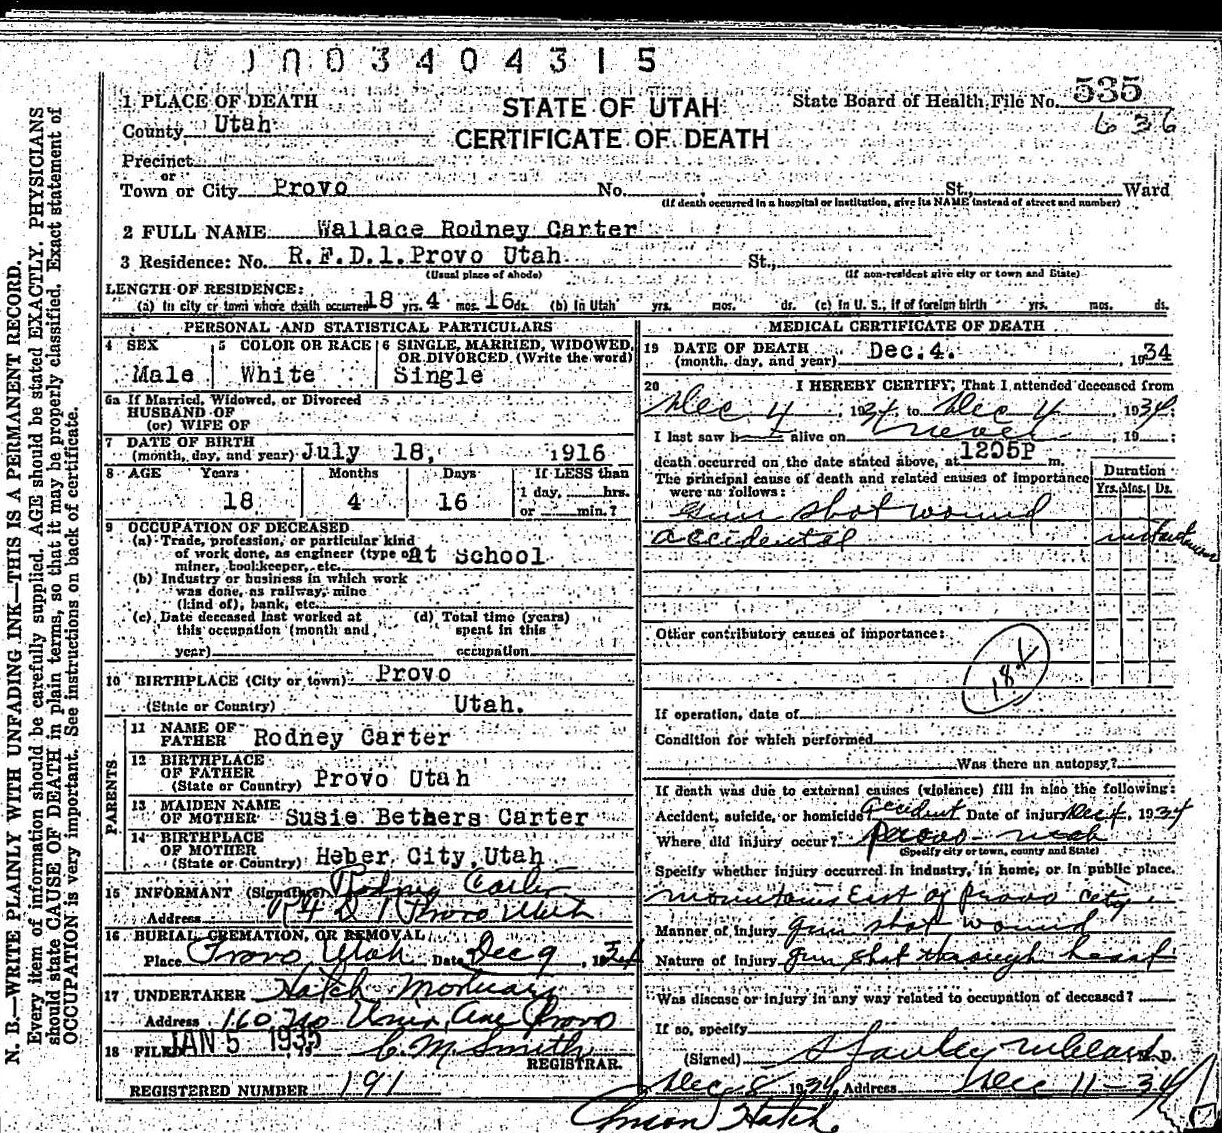 0 0 0 3 4 0 4 3 1 5
1 PLACE OF DEATH
STATE OF UTAH
CERTIFICATE OF DEATH
State Board of Health File No. 535
636
County Utah
Precinct
or
Town or City Provo No. St., Ward
(If death occurred in a hospital or institution, give its NAME instead of street and number)
2 FULL NAME Wallace Rodney Carter
3 Residence: No. R.F.D.1.Provo Utah St.,
(Usual place of abode) (If non-resident give city or town and State)
LENGTH OF RESIDENCE:
(a) In city or town where death occurred 18 yrs. 4 mos. 16 ds. (b) In Utah yrs. mos. ds. (c) In U. S., if of foreign birth yrs. mos. ds.
PERSONAL AND STATISTICAL PARTICULARS
4 SEX 5 COLOR OR RACE 6 SINGLE, MARRIED, WIDOWED,
OR DIVORCED. (Write the word)
Male White Single
6a If Married, Widowed, or Divorced
HUSBAND OF
(or) WIFE OF
7 DATE OF BIRTH
(month, day, and year) July 18, 1916
8 AGE Years Months Days If LESS than
1 day, hrs.
18 4 16 or min.?
9 OCCUPATION OF DECEASED
(a) Trade, profession, or particular kind
of work done, as engineer (type of At School
miner, bookkeeper, etc.
(b) Industry or business in which work
was done, as railway, mine
(kind of), bank, etc.
(c) Date deceased last worked at (d) Total time (years)
this occupation (month and spent in this
year) occupation
10 BIRTHPLACE (City or town) Provo
(State or Country) Utah.
PARENTS
11 NAME OF
FATHER Rodney Carter
12 BIRTHPLACE
OF FATHER Provo Utah
(State or Country)
13 MAIDEN NAME
OF MOTHER Susie Bethers Carter
14 BIRTHPLACE
OF MOTHER
(State or Country) Heber City, Utah
15 INFORMANT (Signature) Rodney Carter
Address R F D 1 Provo Utah
16 BURIAL, CREMATION, OR REMOVAL
Place Provo, Utah Date Dec 9, 1934
17 UNDERTAKER Hatch Mortuary
Address 160 No Univ. Ave Provo
18 FILED JAN 5 1935 C. M. Smith
REGISTRAR.
REGISTERED NUMBER 191
MEDICAL CERTIFICATE OF DEATH
19 DATE OF DEATH
(month, day, and year) Dec.4. 1934
20 I HEREBY CERTIFY, That I attended deceased from
Dec 4, 1934 to Dec 4, 1934
I last saw h alive on never, 19
death occurred on the date stated above, at 1205P m.
The principal cause of death and related causes of importance
were as follows:
Duration
Yrs. Mos. Ds.
Gun shot wound
accidental
Other contributory causes of importance:
184
If operation, date of
Condition for which performed
Was there an autopsy?
If death was due to external causes (violence) fill in also the following:
Accident, suicide, or homicide? accident Date of injury Dec 4, 1934
Where did injury occur? Provo - Utah
(Specify city or town, county and State)
Specify whether injury occurred in industry, in home, or in public place.
mountains East of Provo city.
Manner of injury gun shot wound
Nature of injury gun shot through head
Was disease or injury in any way related to occupation of deceased?
If so, specify
(Signed) Stanley M. D.
Dec 8 1934 Address Dec 11-34
Anson Hatch.
N. B.—WRITE PLAINLY WITH UNFADING INK—THIS IS A PERMANENT RECORD.
Every item of information should be carefully supplied. AGE should be stated EXACTLY. PHYSICIANS
should state CAUSE OF DEATH in plain terms, so that it may be properly classified. Exact statement of
OCCUPATION is very important. See instructions on back of certificate.